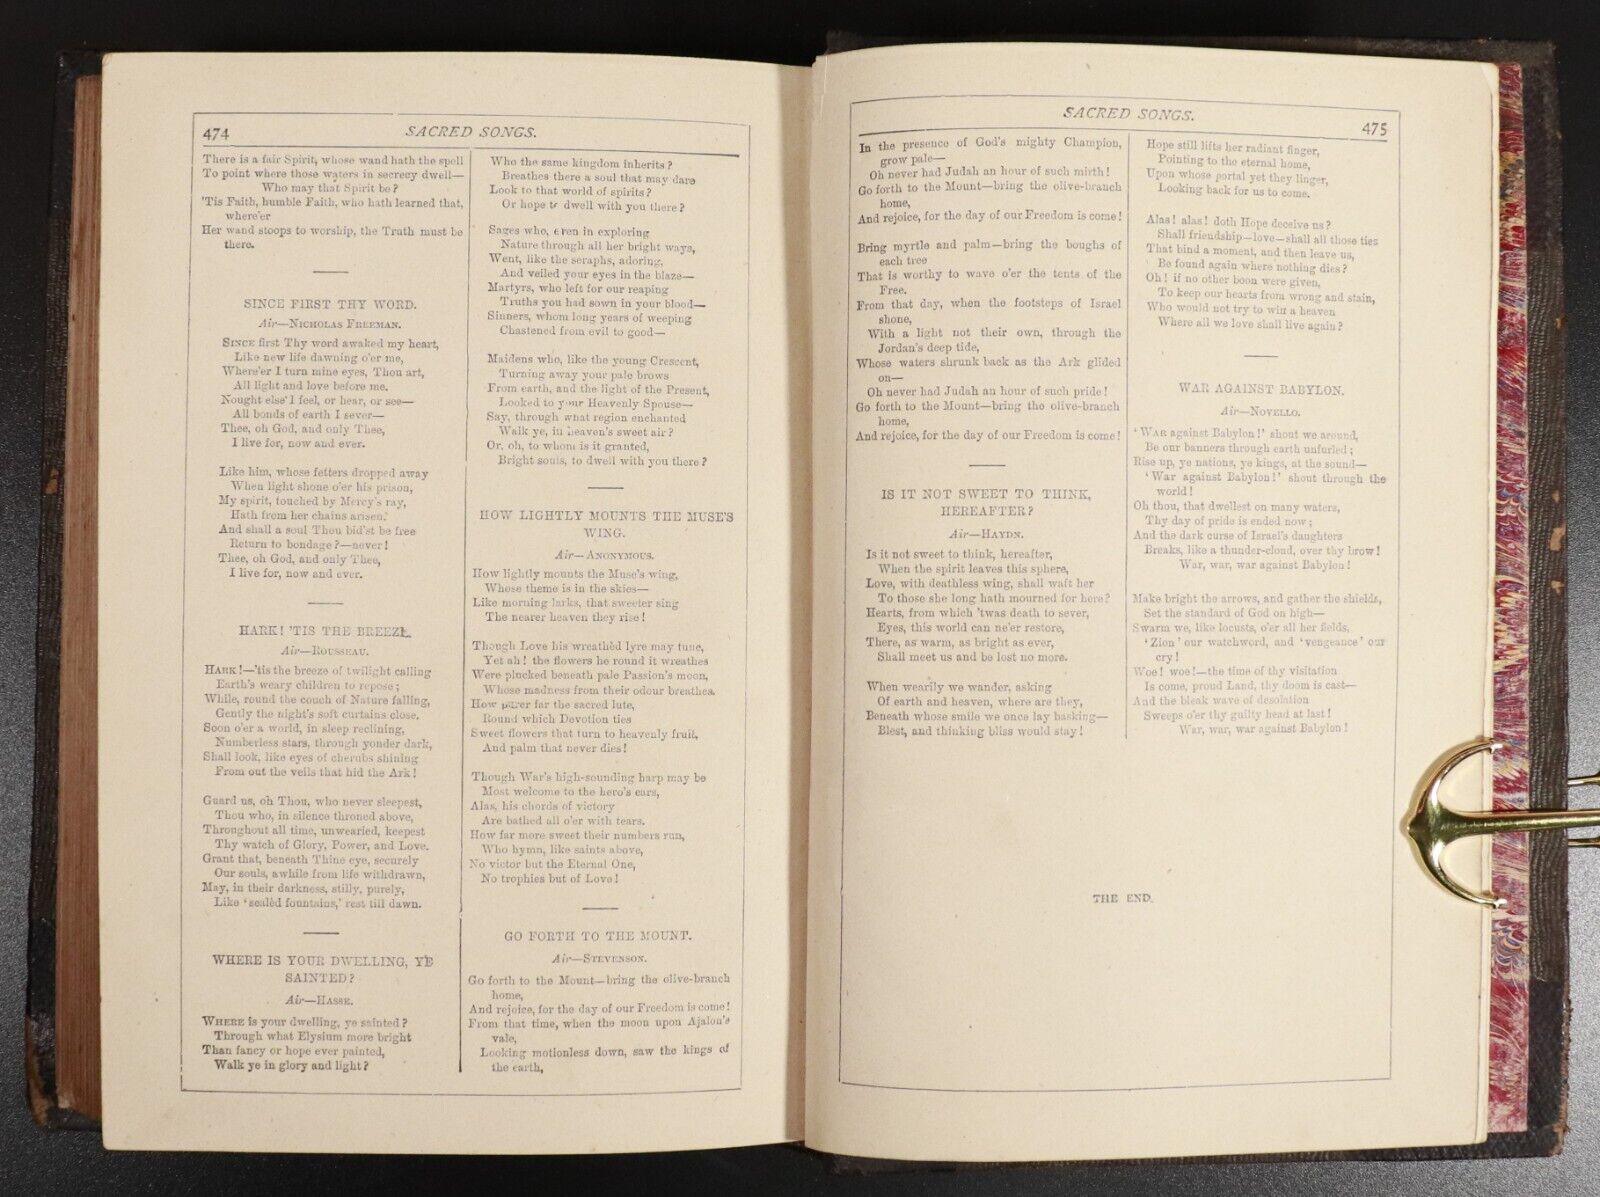 474
SACRED SONGS.
There is a fair Spirit, whose wand hath the spell
To point where those waters in secrecy dwell—
Who may that Spirit be?
'Tis Faith, humble Faith, who hath learned that,
where'er
Her wand stoops to worship, the Truth must be
there.
SINCE FIRST THY WORD.
Air—NICHOLAS FREEMAN.
SINCE first Thy word awaked my heart,
Like new life dawning o'er me,
Where'er I turn mine eyes, Thou art,
All light and love before me.
Nought else I feel, or hear, or see—
All bonds of earth I sever—
Thee, oh God, and only Thee,
I live for, now and ever.
Like him, whose fetters dropped away
When light shone o'er his prison,
My spirit, touched by Mercy's ray,
Hath from her chains arisen.
And shall a soul Thou bid'st be free
Return to bondage?—never!
Thee, oh God, and only Thee,
I live for, now and ever.
HARK! 'TIS THE BREEZE.
Air—ROUSSEAU.
HARK!—'tis the breeze of twilight calling
Earth's weary children to repose;
While, round the couch of Nature falling,
Gently the night's soft curtains close.
Soon o'er a world, in sleep reclining,
Numberless stars, through yonder dark,
Shall look, like eyes of cherubs shining
From out the veils that hid the Ark!
Guard us, oh Thou, who never sleepest,
Thou who, in silence throned above,
Throughout all time, unwearied, keepest
Thy watch of Glory, Power, and Love.
Grant that, beneath Thine eye, securely
Our souls, awhile from life withdrawn,
May, in their darkness, stilly, purely,
Like 'sealèd fountains,' rest till dawn.
WHERE IS YOUR DWELLING, YE
SAINTED?
Air—HASSE.
WHERE is your dwelling, ye sainted?
Through what Elysium more bright
Than fancy or hope ever painted,
Walk ye in glory and light?
Who the same kingdom inherits?
Breathes there a soul that may dare
Look to that world of spirits?
Or hope to dwell with you there?
Sages who, even in exploring
Nature through all her bright ways,
Went, like the seraphs, adoring,
And veiled your eyes in the blaze—
Martyrs, who left for our reaping
Truths you had sown in your blood—
Sinners, whom long years of weeping
Chastened from evil to good—
Maidens who, like the young Crescent,
Turning away your pale brows
From earth, and the light of the Present,
Looked to your Heavenly Spouse—
Say, through what region enchanted
Walk ye, in heaven's sweet air?
Or, oh, to whom is it granted,
Bright souls, to dwell with you there?
HOW LIGHTLY MOUNTS THE MUSE'S
WING.
Air—ANONYMOUS.
How lightly mounts the Muse's wing,
Whose theme is in the skies—
Like morning larks, that sweeter sing
The nearer heaven they rise!
Though Love his wreathèd lyre may tune,
Yet ah! the flowers he round it wreathes
Were plucked beneath pale Passion's moon,
Whose madness from their odour breathes.
How purer far the sacred lute,
Round which Devotion ties
Sweet flowers that turn to heavenly fruit,
And palm that never dies!
Though War's high-sounding harp may be
Most welcome to the hero's ears,
Alas, his chords of victory
Are bathed all o'er with tears.
How far more sweet their numbers run,
Who hymn, like saints above,
No victor but the Eternal One,
No trophies but of Love!
GO FORTH TO THE MOUNT.
Air—STEVENSON.
Go forth to the Mount—bring the olive-branch
home,
And rejoice, for the day of our Freedom is come!
From that time, when the moon upon Ajalon's
vale,
Looking motionless down, saw the kings of
the earth,
SACRED SONGS.
475
In the presence of God's mighty Champion,
grow pale—
Oh never had Judah an hour of such mirth!
Go forth to the Mount—bring the olive-branch
home,
And rejoice, for the day of our Freedom is come!
Bring myrtle and palm—bring the boughs of
each tree
That is worthy to wave o'er the tents of the
Free.
From that day, when the footsteps of Israel
shone,
With a light not their own, through the
Jordan's deep tide,
Whose waters shrunk back as the Ark glided
on—
Oh never had Judah an hour of such pride!
Go forth to the Mount—bring the olive-branch
home,
And rejoice, for the day of our Freedom is come!
IS IT NOT SWEET TO THINK,
HEREAFTER?
Air—HAYDN.
Is it not sweet to think, hereafter,
When the spirit leaves this sphere,
Love, with deathless wing, shall waft her
To those she long hath mourned for here?
Hearts, from which 'twas death to sever,
Eyes, this world can ne'er restore,
There, as warm, as bright as ever,
Shall meet us and be lost no more.
When wearily we wander, asking
Of earth and heaven, where are they,
Beneath whose smile we once lay basking—
Blest, and thinking bliss would stay!
Hope still lifts her radiant finger,
Pointing to the eternal home,
Upon whose portal yet they linger,
Looking back for us to come.
Alas! alas! doth Hope deceive us?
Shall friendship—love—shall all those ties
That bind a moment, and then leave us,
Be found again where nothing dies?
Oh! if no other boon were given,
To keep our hearts from wrong and stain,
Who would not try to win a heaven
Where all we love shall live again?
WAR AGAINST BABYLON.
Air—NOVELLO.
'WAR against Babylon!' shout we around,
Be our banners through earth unfurled;
Rise up, ye nations, ye kings, at the sound—
'War against Babylon!' shout through the
world!
Oh thou, that dwellest on many waters,
Thy day of pride is ended now;
And the dark curse of Israel's daughters
Breaks, like a thunder-cloud, over thy brow!
War, war, war against Babylon!
Make bright the arrows, and gather the shields,
Set the standard of God on high—
Swarm we, like locusts, o'er all her fields,
'Zion' our watchword, and 'vengeance' our
cry!
Woe! woe!—the time of thy visitation
Is come, proud Land, thy doom is cast—
And the bleak wave of desolation
Sweeps o'er thy guilty head at last!
War, war, war against Babylon!
THE END.